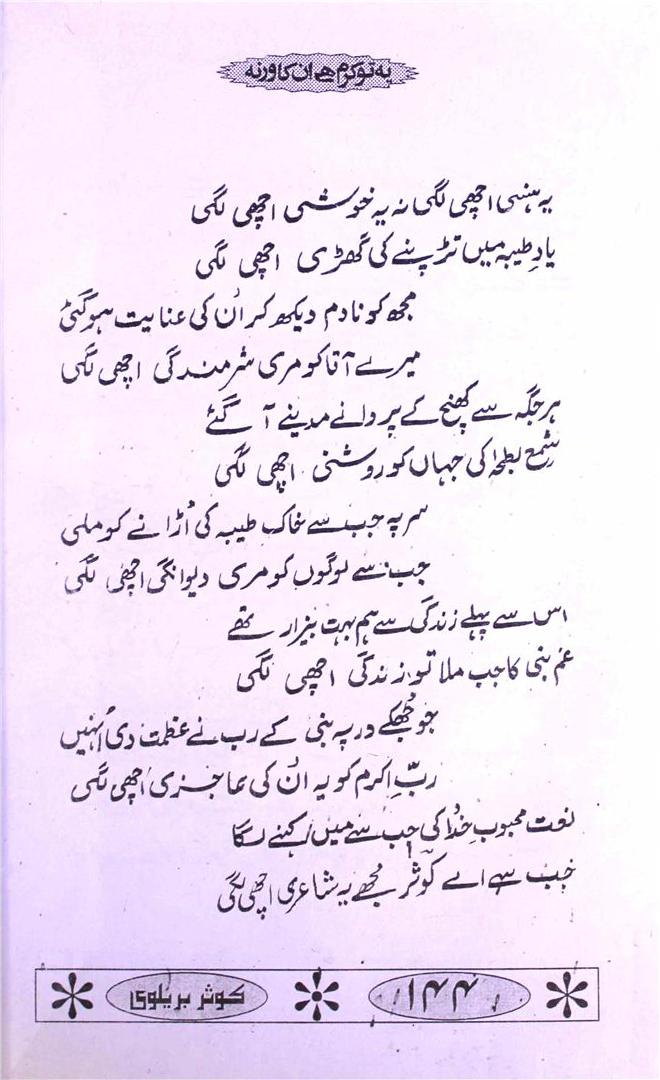 یہ تو کرم ھے ان کا ورنہ
یہ ہنسی اچھی لگی نہ یہ خوشی اچھی لگی
یادِ طیبہ میں تڑپنے کی گھڑی اچھی لگی
مجھ کو نادم دیکھ کر اُن کی عنایت ہوگئی
میرے آقا کو مری شرمندگی اچھی لگی
ہر جگہ سے کھنچ کے پروانے مدینے آ گئے
شمع بطحا کی جہاں کو روشنی اچھی لگی
سر پہ جب سے خاک طیبہ کی اُڑانے کو ملی
جب سے لوگوں کو مری دیوانگی اچھی لگی
اس سے پہلے زندگی سے ہم بہت بیزار تھے
غم نبی کا جب ملا تو زندگی اچھی لگی
جو جُھکے در پہ نبی کے رب نے عظمت دی اُنہیں
ربِّ اکرم کو یہ اُن کی عاجزی اچھی لگی
نعت محبوب خُدا کی جب سے میں کہنے لگا
جب سے اے کوثر مجھے یہ شاعری اچھی لگی
۱۴۴ کوثر بریلوی